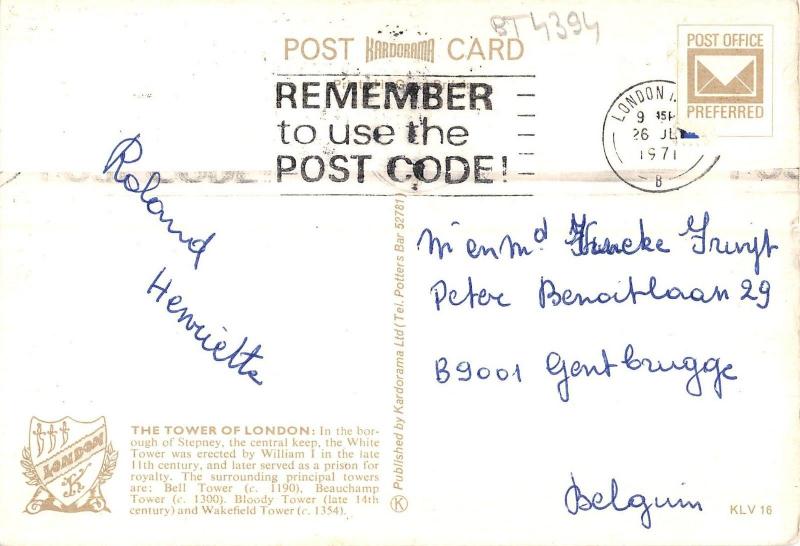 BT 4394
POST KARDORAMA CARD
REMEMBER
to use the
POST CODE!
POST OFFICE
PREFERRED
LONDON
9
26 JL
1971
B
Roland
Henrietta
Mr en Md
Peter Benoitlaan 29
B9001 Gentbrugge
Belguim
Published by Kardorama Ltd (Tel. Potters Bar 52781)
K
LONDON
K
THE TOWER OF LONDON: In the bor-
ough of Stepney, the central keep, the White
Tower was erected by William I in the late
11th century, and later served as a prison for
royalty. The surrounding principal towers
are: Bell Tower (c. 1190), Beauchamp
Tower (c. 1300). Bloody Tower (late 14th
century) and Wakefield Tower (c. 1354).
KLV 16